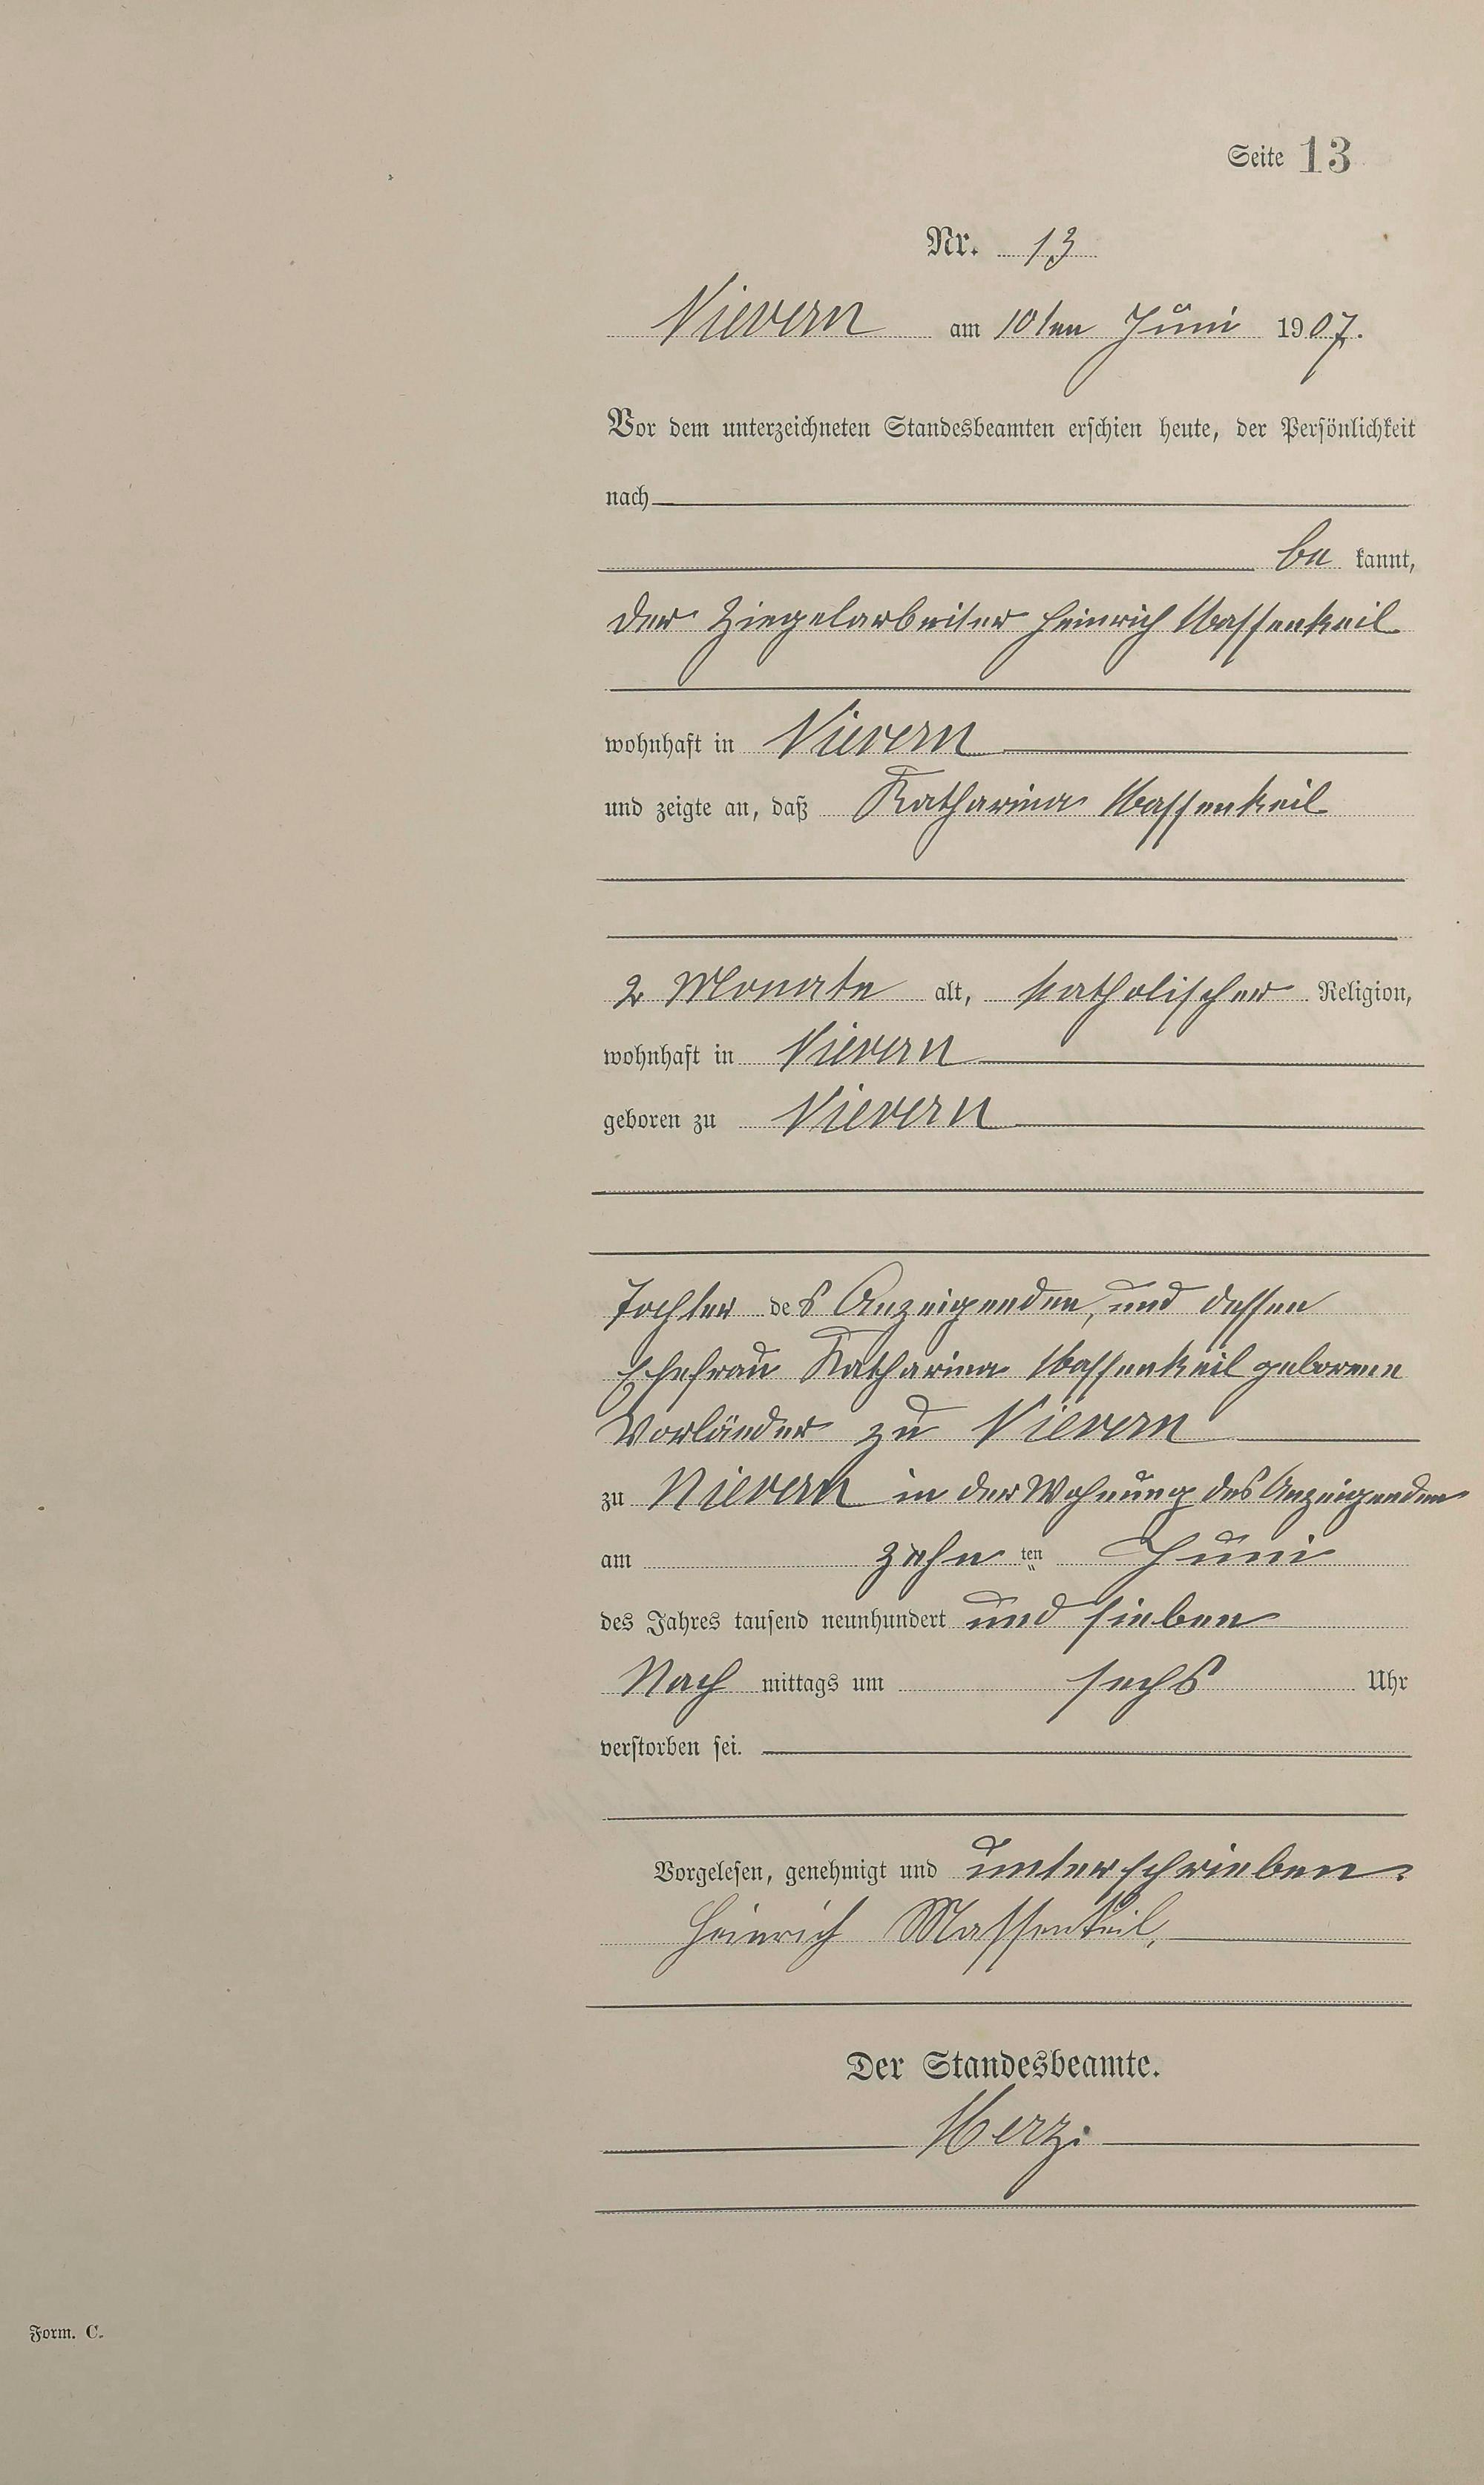 Seite 13
Nr. 13
Nievern am 10ten Juni 1907.
Vor dem unterzeichneten Standesbeamten erschien heute, der Persönlichkeit
nach
be kannt,
der Ziegelarbeiter Heinrich Massenkeil
wohnhaft in Nievern
und zeigte an, daß Katharina Massenkeil
2 Monate alt, katholischer Religion,
wohnhaft in Nievern
geboren zu Nievern
Tochter des Anzeigenden, und dessen
Ehefrau Katharina Massenkeil geborene
Vorländer zu Nievern
zu Nievern in der Wohnung des Anzeigenden
am zehn ten Juni
des Jahres tausend neunhundert und sieben
Nach mittags um sechs Uhr
verstorben sei.
Vorgelesen, genehmigt und unterschrieben.
Heinrich Massenkeil,
Der Standesbeamte.
Merz.
Form. C.